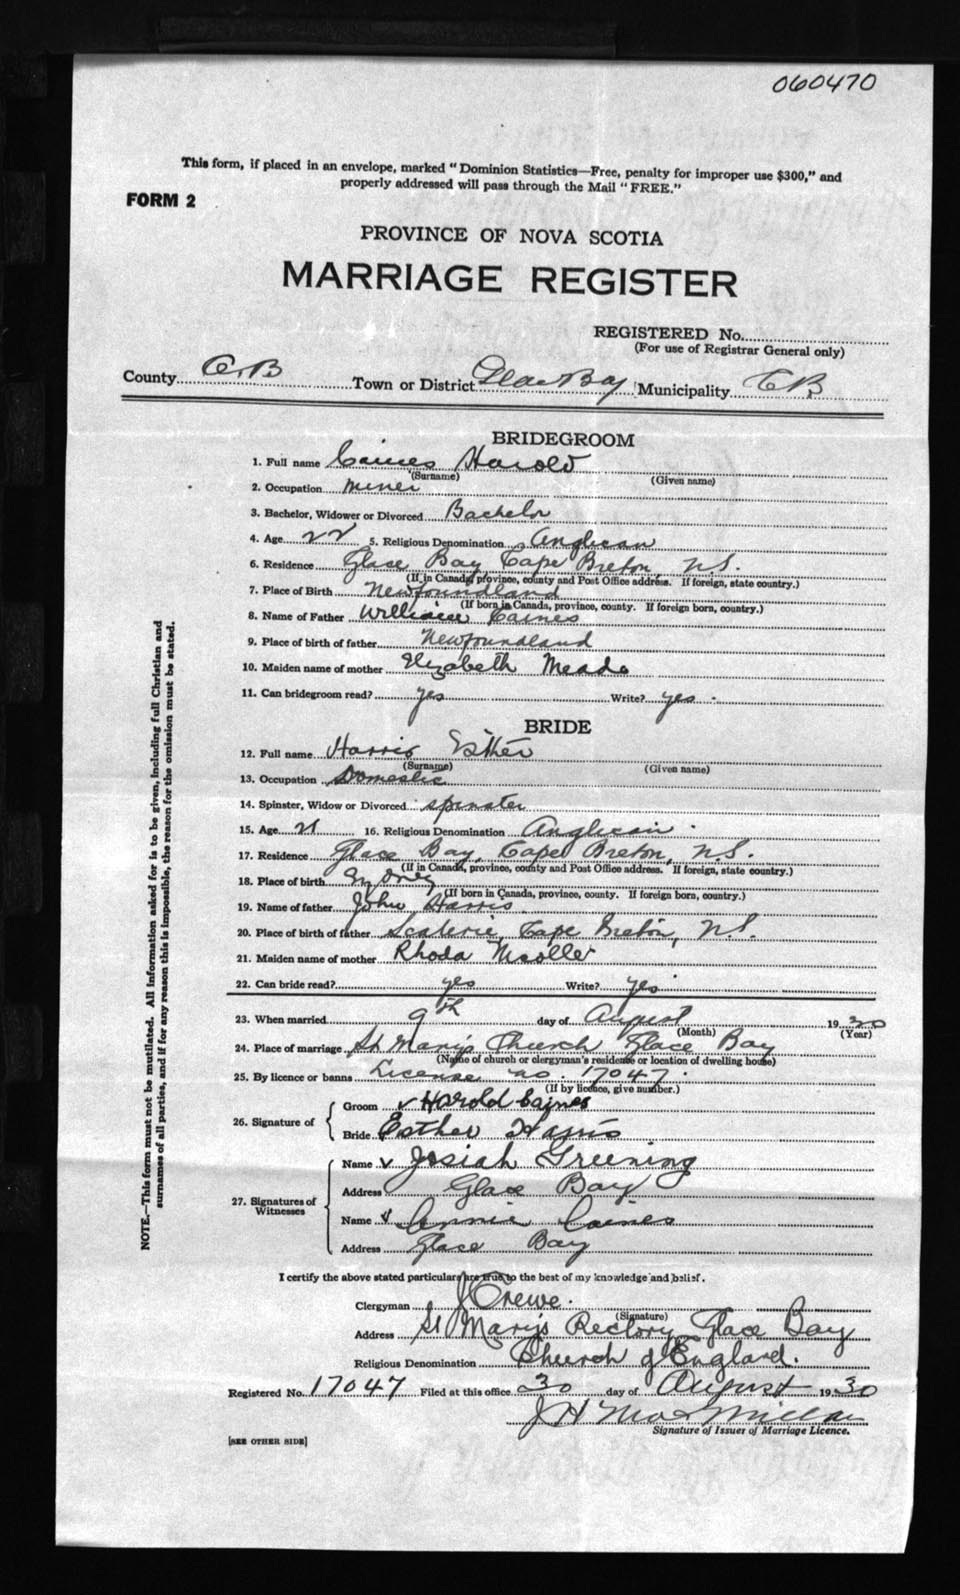 060470
This form, if placed in an envelope, marked "Dominion Statistics—Free, penalty for improper use $300," and
properly addressed will pass through the Mail "FREE."
FORM 2
PROVINCE OF NOVA SCOTIA
MARRIAGE REGISTER
REGISTERED No.
(For use of Registrar General only)
County C.B Town or District Glace Bay Municipality CB
BRIDEGROOM
1. Full name Caines Harold
(Surname) (Given name)
2. Occupation miner
3. Bachelor, Widower or Divorced Bachelor
4. Age 22 5. Religious Denomination Anglican
6. Residence Glace Bay Cape Breton, N.S.
(If in Canada, province, county and Post Office address. If foreign, state country.)
7. Place of Birth Newfoundland
(If born in Canada, province, county. If foreign born, country.)
8. Name of Father William Caines
9. Place of birth of father Newfoundland
10. Maiden name of mother Elizabeth Meade
11. Can bridegroom read? yes Write? yes.
BRIDE
12. Full name Harris Esther
(Surname) (Given name)
13. Occupation Domestic
14. Spinster, Widow or Divorced spinster
15. Age 21 16. Religious Denomination Anglican.
17. Residence Glace Bay, Cape Breton, N.S.
(If in Canada, province, county and Post Office address. If foreign, state country.)
18. Place of birth Sydney
(If born in Canada, province, county. If foreign born, country.)
19. Name of father John Harris
20. Place of birth of father Scaterie, Cape Breton, N.S.
21. Maiden name of mother Rhoda
22. Can bride read? yes Write? yes
23. When married 9th day of August 1930
(Month) (Year)
24. Place of marriage St Mary's Church Glace Bay
(Name of church or clergyman's residence or location of dwelling house)
25. By licence or banns License no. 17047.
(If by licence, give number.)
26. Signature of
Groom Harold Caines
Bride Esther Harris
27. Signatures of Witnesses
Name Josiah Greening
Address Glace Bay
Name Annie Caines
Address Glace Bay
I certify the above stated particulars are true to the best of my knowledge and belief.
Clergyman J Crewe.
(Signature)
Address St Mary's Rectory, Glace Bay
Religious Denomination Church of England.
Registered No. 17047 Filed at this office 30 day of August 1930
J H MacMillan
Signature of Issuer of Marriage Licence.
[SEE OTHER SIDE]
NOTE.—This form must not be mutilated. All information asked for is to be given, including full Christian and
surnames of all parties, and if for any reason this is impossible, the reason for the omission must be stated.